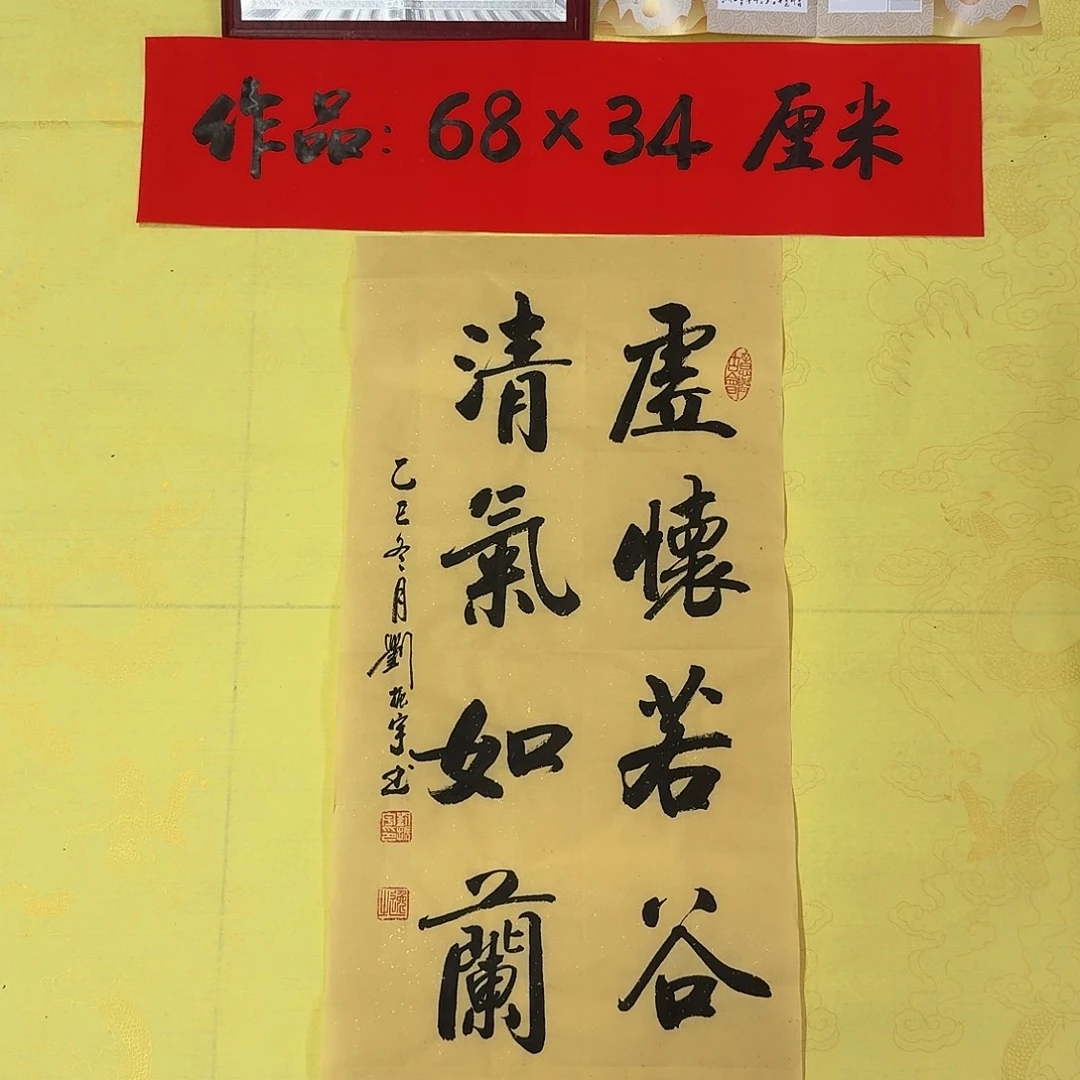 作品：68×34厘米
虛懷若谷
清氣如蘭
乙巳冬月劉振宇书